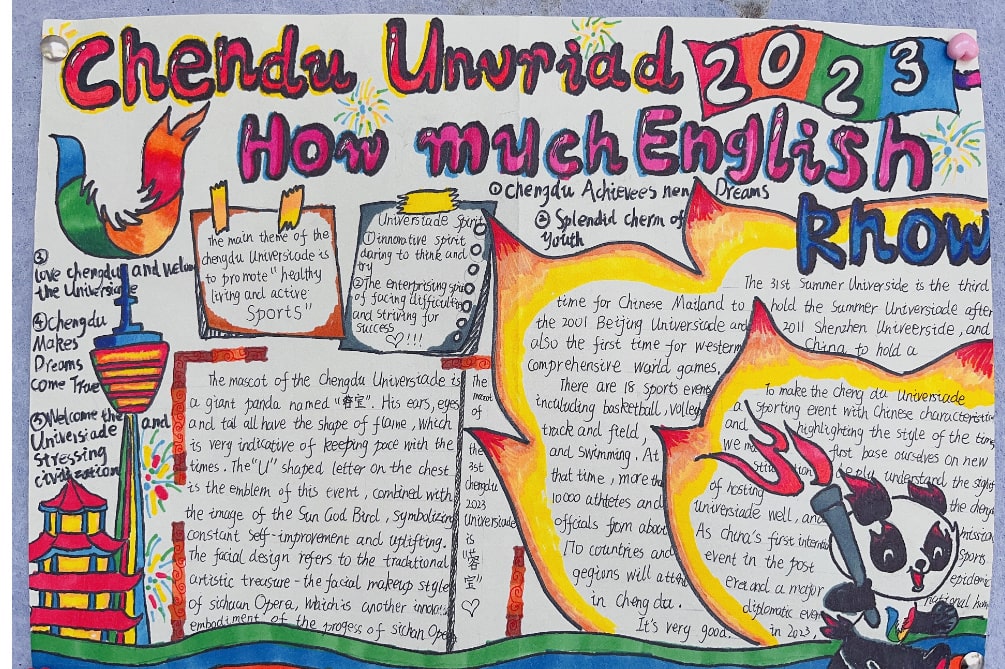 Chendu Unvriad 2023
How much English
Rhow
① Chengdu Achievees nen Dreams
② Splendid cherm of
Youth
③
love chengdu and
the Universiade
④ Chengdu
Makes
Dreams
come True
⑤ Welcome the
Universiade and
stressing
civilization
The main theme of the
chengdu Universiade is
to promote "healthy
living and active
Sports"
Universiade Spirit
① innovative spirit
daring to think and
try
② The enterprising
of facing difficulties
and striving for
success
♡!!!
The mascot of the Chengdu Universiade is
a giant panda named "蓉宝". His ears, eyes
and tail all have the shape of flame, which
is very indicative of keeping pace with the
times. The "U" shaped letter on the chest
is the emblem of this event, combined with
the image of the Sun God Bird, symbolizing
constant self-improvement and uplifting.
The facial design refers to the traditional
artistic treasure - the facial makeup style
of sichuan Opera, which is another
embodiment of the progess of sichan Opera
The
mascot
of
the
31st
chengdu
2023
Universiade
is
"蓉
宝"
♡
The 31st Summer Universide is the third
time for Chinese Mailand to hold the Summer Universiade after
the 2001 Beijing Universiade and 2011 Shenzhen Univeerside, and
also the first time for western China to hold a
comprehensive warld games.
There are 18 sports events
inculuding basketball, volley
track and field,
and swimming. At
that time, more tha
10000 athletes and
officals from about
170 countries and
gegions will
in Cheng du.
It's very good.
To make the cheng du Universiade
a sporting event with Chinese characteristic
and highlighting the style of the
we first base ourselves on new
understand the
of hosting the
universiade well, and
As china's first
event in the post epidemic
era and a major national
diplomatic event
in 2023,